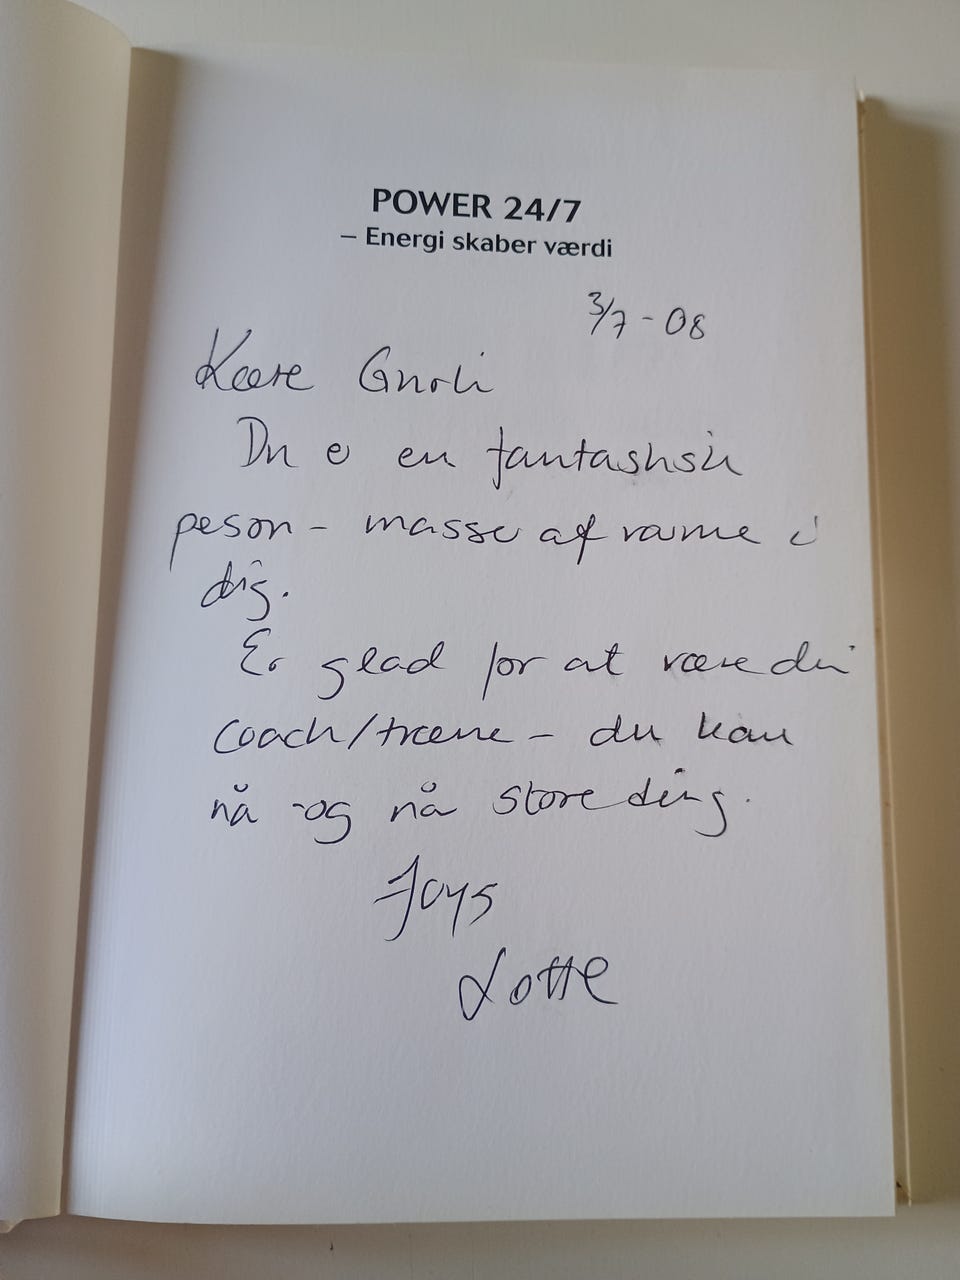 POWER 24/7
– Energi skaber værdi
3/7 - 08
Kære Gurli
Du e en fantastisk
peson - masse af varme i
dig.
Er glad for at være din
coach/træne - du kan
nå - og nå store ding.
Joys
Lotte